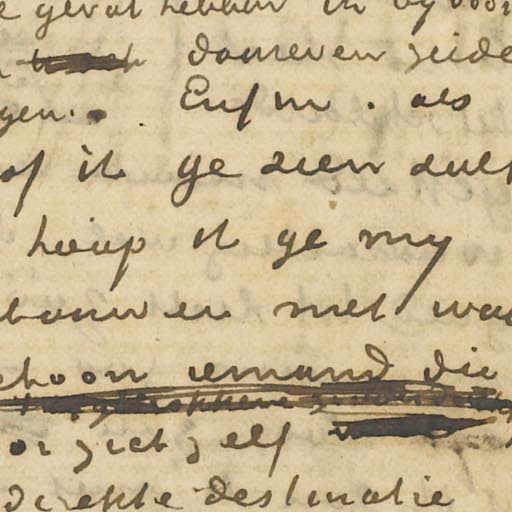 e geval hebben ik by voor
daareven zeide
gen. Enfin. als
of ik ge zien zult
hoop ik ge my
bouwen met wa
choon iemand die
or zich zelf
directe destinatie